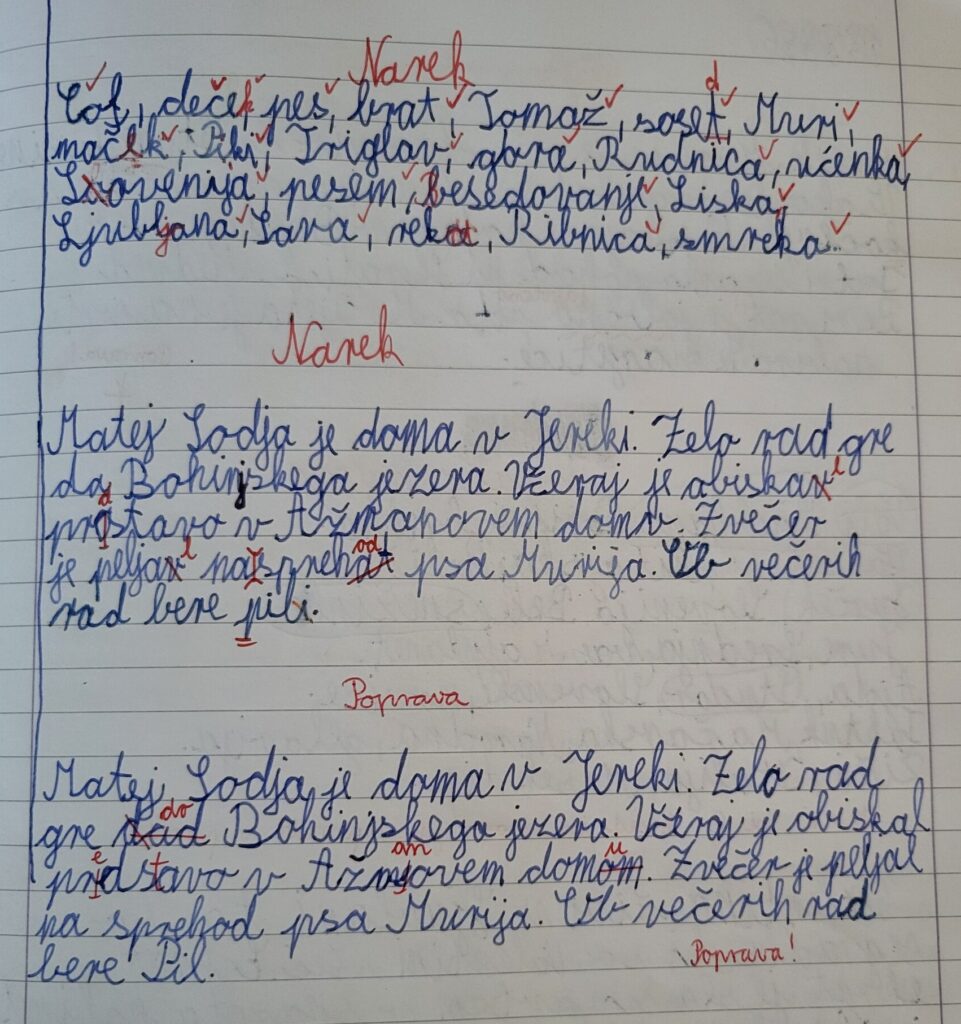 Narek
Cof, deček, pes, brat, Tomaž, soset, Muri,
d
maček, Piki, Triglav, gora, Rudnica, učenka,
Slovenija, pesem, besedovanje, Liska,
Ljubljana, Sava, reka, Ribnica, smreka.
Narek
Matej Sodja je doma v Jereki. Zelo rad gre
do Bohinjskega jezera. Včeraj je obiskav l
pristavo v Ažmanovem domu. Zvečer
je peljav l na sprehot od psa Murija. Ob večerih
rad bere pil.
Poprava
Matej Sodja je doma v Jereki. Zelo rad
gre do Bohinjskega jezera. Včeraj je obiskal
predstavo v Ažmanovem domu. Zvečer je peljal
na sprehod psa Murija. Ob večerih rad
bere Pil.
Poprava!